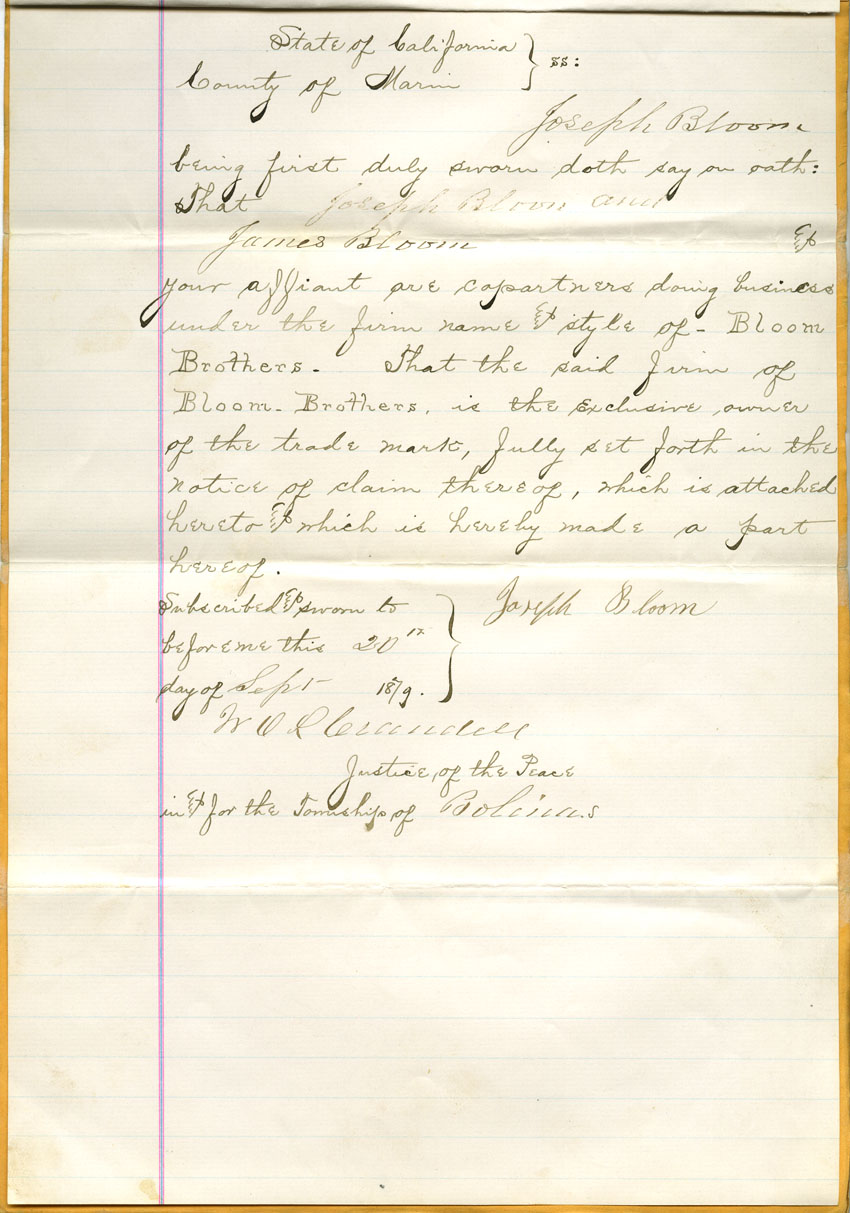 State of California } ss:
County of Marin
Joseph Bloom
being first duly sworn doth say on oath:
That Joseph Bloom and
James Bloom &
your affiant are copartners doing business
under the firm name & style of - Bloom
Brothers. That the said firm of
Bloom-Brothers, is the exclusive owner
of the trade mark, fully set forth in the
notice of claim thereof, which is attached
hereto & which is hereby made a part
hereof.
Subscribed & sworn to } Joseph Bloom
before me this 20th
day of Sept 1879.
W O L Crandell
Justice of the Peace
in & for the Township of Bolinas